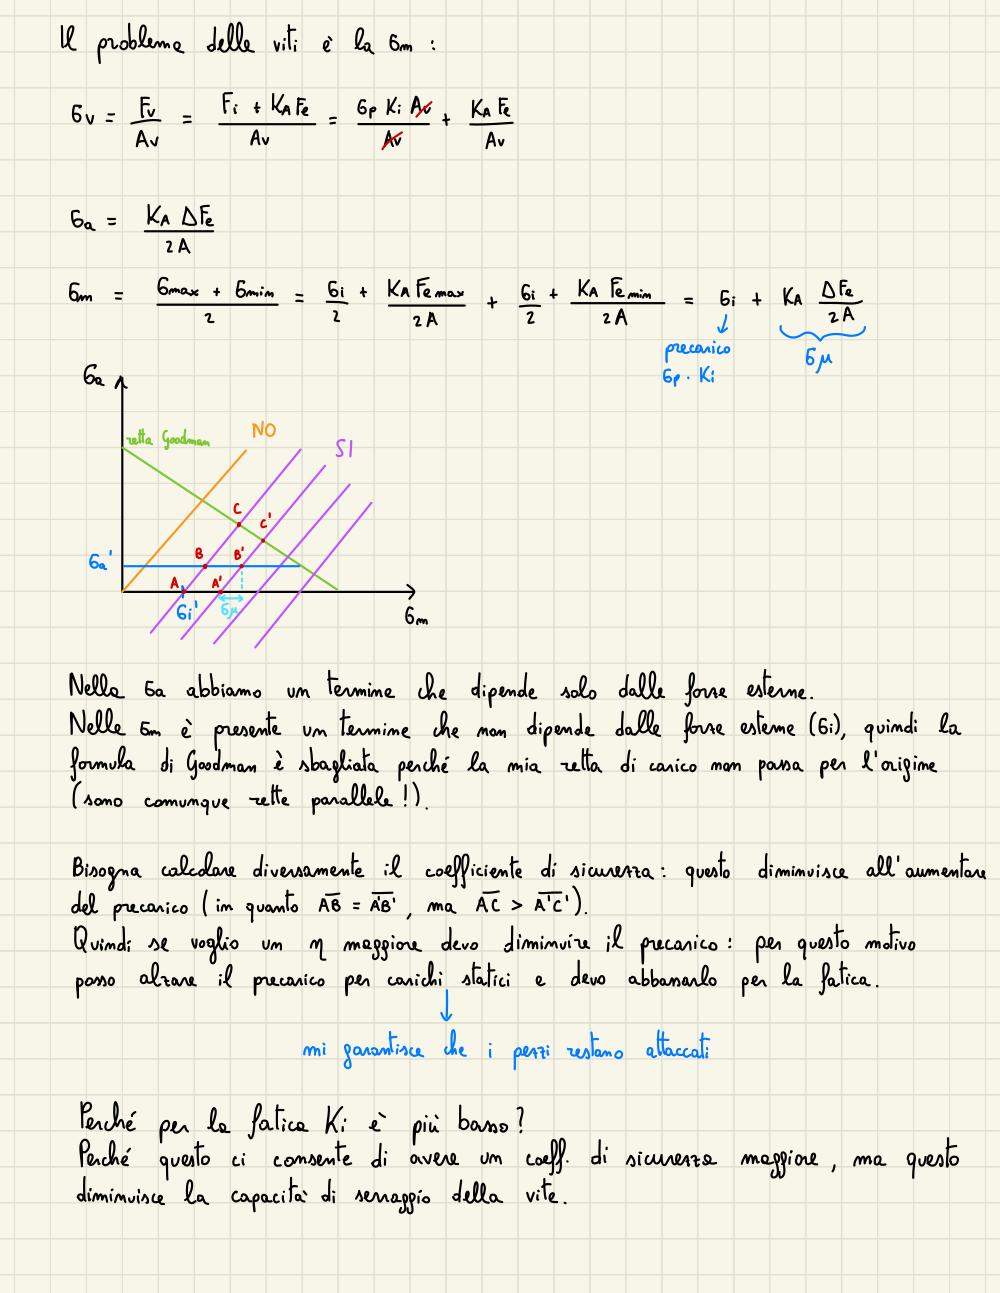 Il problema delle viti è la σm :
σv = Fv / Av = (Fi + KA Fe) / Av = σp Ki Av / Av + KA Fe / Av
σa = KA ΔFe / 2A
σm = (σmax + σmin) / 2 = σi / 2 + KA Fe max / 2A + σi / 2 + KA Fe min / 2A = σi + KA ΔFe / 2A
precarico
σp · Ki
σμ
σa
retta Goodman
NO
SI
C
C'
B
B'
σa'
A
A'
σi'
σμ
σm
Nella σa abbiamo un termine che dipende solo dalle forze esterne.
Nelle σm è presente un termine che non dipende dalle forze esterne (σi), quindi la
formula di Goodman è sbagliata perché la mia retta di carico non passa per l'origine
(sono comunque rette parallele !).
Bisogna calcolare diversamente il coefficiente di sicurezza : questo diminuisce all'aumentare
del precarico ( in quanto A̅B̅ = A̅'B̅' , ma A̅C̅ > A̅'C̅' ).
Quindi se voglio un η maggiore devo diminuire il precarico : per questo motivo
posso alzare il precarico per carichi statici e devo abbassarlo per la fatica.
mi garantisce che i pezzi restano attaccati
Perché per la fatica Ki è più basso ?
Perché questo ci consente di avere un coeff. di sicurezza maggiore , ma questo
diminuisce la capacità di serraggio della vite.